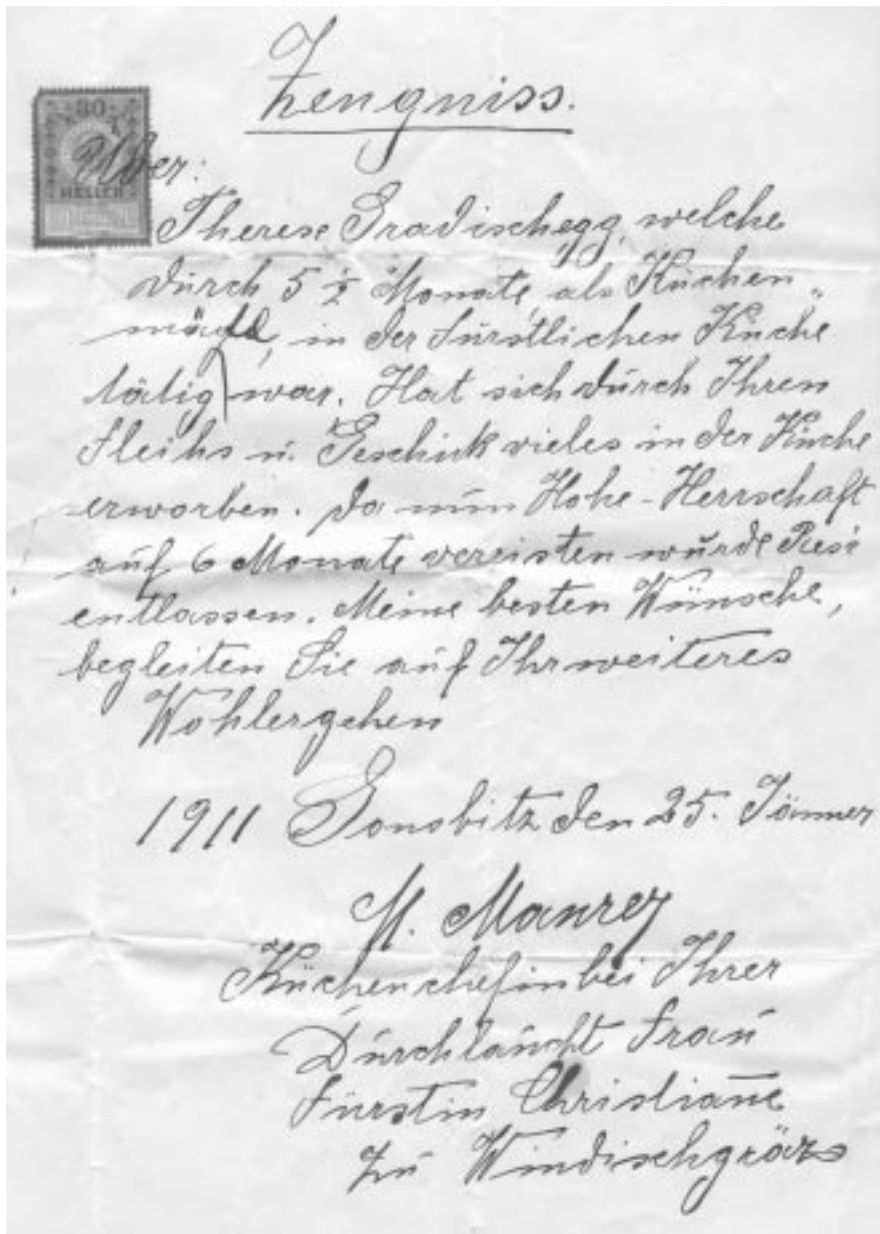 Zeugniss.
30
HELLER
Über:
Therese Gradischegg, welche
durch 5 1/2 Monate, als Küchen„
mägd, in der fürstlichen Küche
tätig war. Hat sich durch Ihren
Fleihs u. Geschick vieles in der Küche
erworben. Da nun Hohe-Herrschaft
auf 6 Monate vereisten wurde Diese
entlassen. Meine besten Wünsche,
begleiten Sie auf Ihr weiteres
Wohlergehen
1911 Gonobitz den 25. Jänner
M.
Küchenchefin bei Ihrer
Durchlaucht Frau
Fürstin Christiane
zu Windischgräz